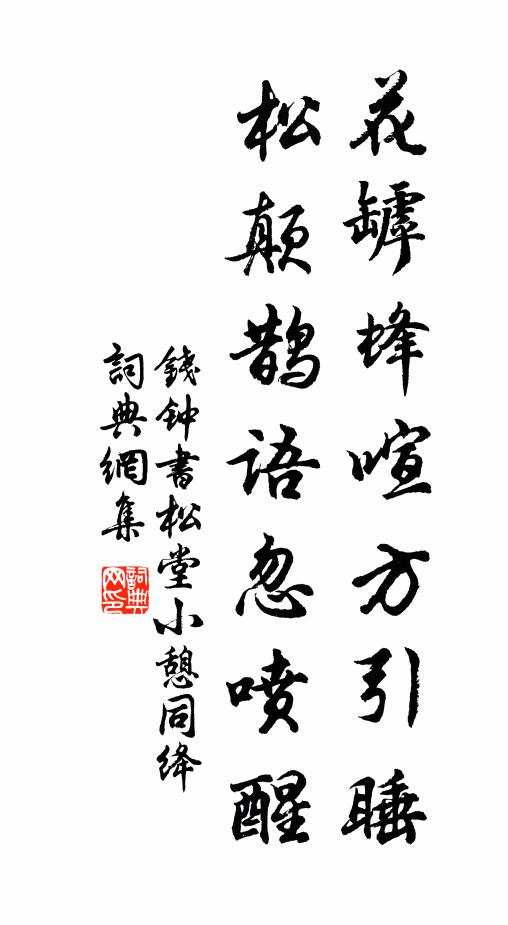 花罅蜂喧方引睡
松颠鹊语忽喷醒
錢钟書松堂小憩同绛
詞典網集
詞典网印